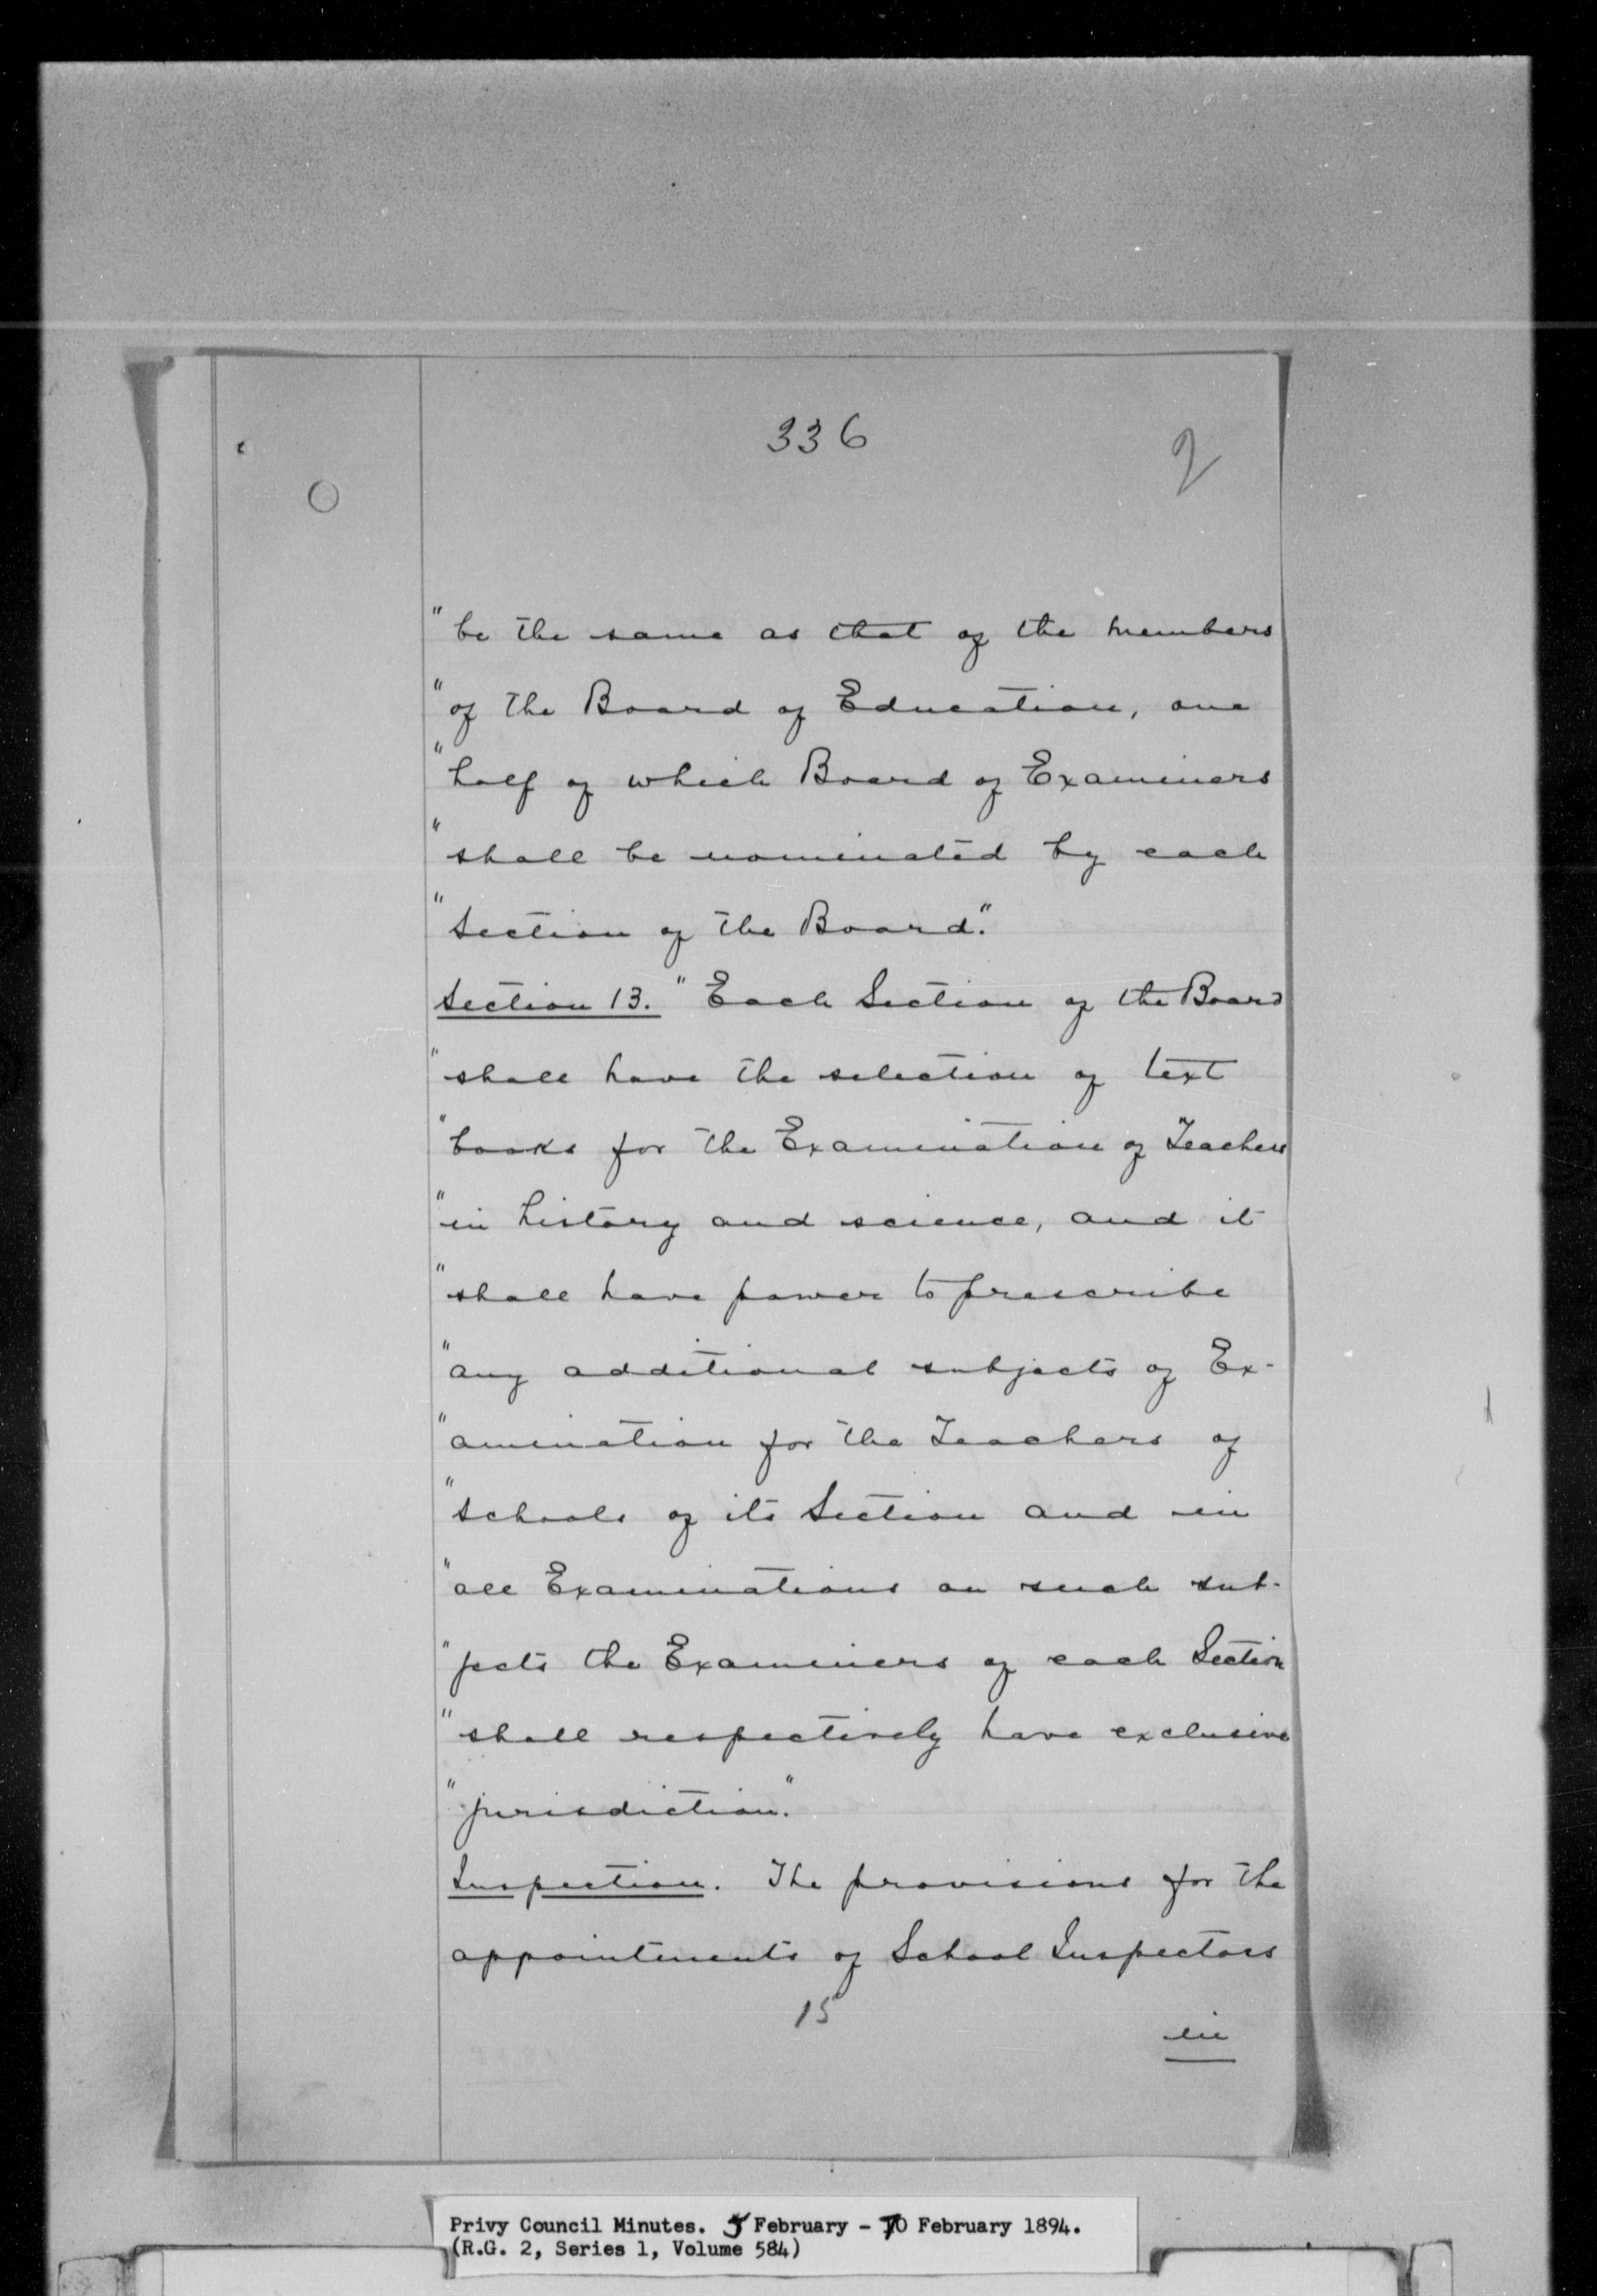 336
2
"be the same as that of the members
"of the Board of Education, one
"half of which Board of Examiners
"shall be nominated by each
"Section of the Board."
Section 13. "Each Section of the Board
"shall have the selection of text
"books for the Examination of Teachers
"in history and science, and it
"shall have power to prescribe
"any additional subjects of Ex-
"amination for the Teachers of
"schools of its Section and in
"all Examinations on such sub-
"jects the Examiners of each Section
"shall respectively have exclusive
"jurisdiction."
Inspection. The provisions for the
appointments of School Inspectors
15
in
Privy Council Minutes. 5 February - 10 February 1894.
(R.G. 2, Series 1, Volume 584)